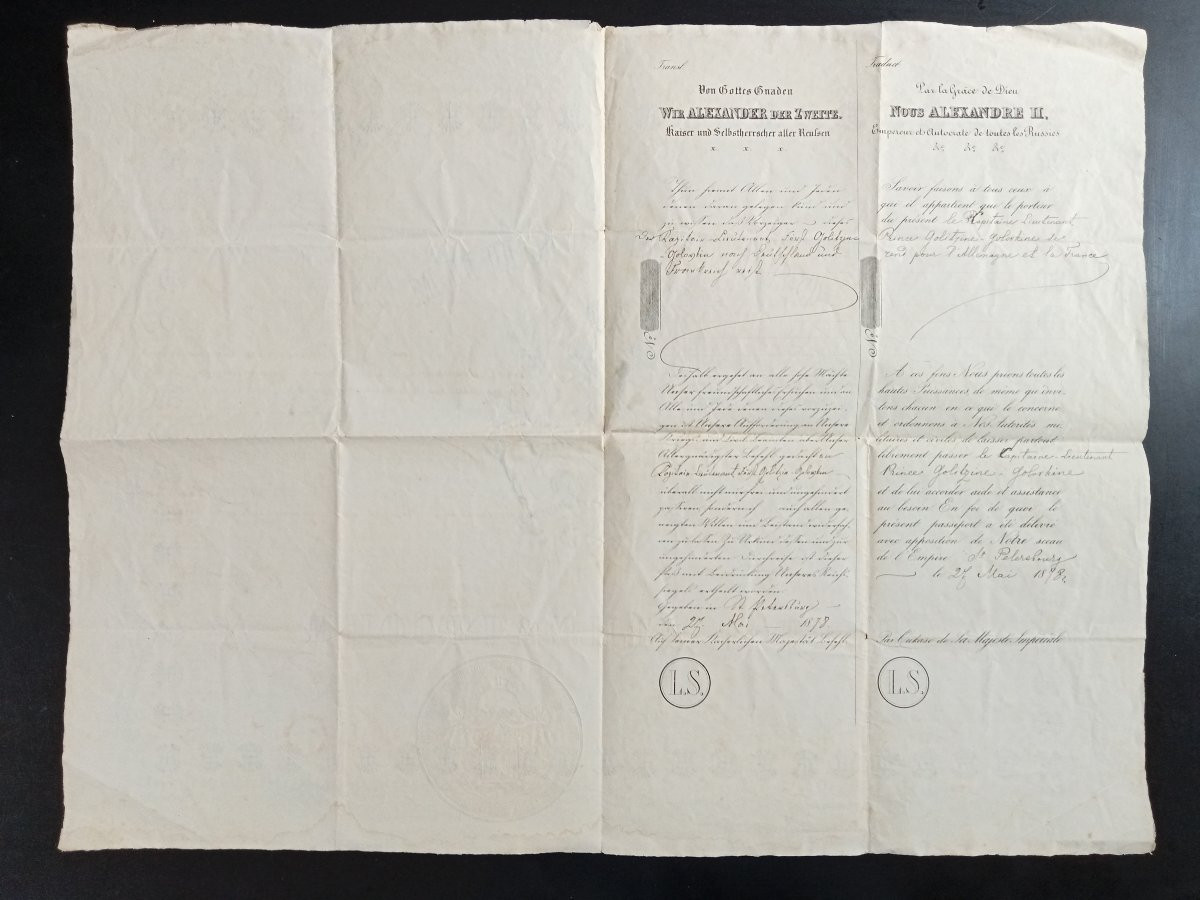 Transl.
Von Gottes Gnaden
WIR ALEXANDER DER ZWEITE.
Kaiser und Selbstherrscher aller Reussen
x. x. x.
Thun hiermit Allen und Jeden
denen daran gelegen kund und
zu wissen dass Vorzeiger dieses
Der Kapitain Lieutenant, Fürst Golitzin
Golovkin nach Deutschland und
Frankreich reist
№
Deshalb ergeht an alle hohe Mächte
Unser freundschaftliches Ersuchen und an
Alle und Jede denen dieses
ist Unsere Aufforderung an Unsere
aber Unser
Allergnädigster Befehl
Kapitain Lieutenant Fürst Golitzin Golovkin
überall nicht nur frei und ungehindert
passiren sondern auch allen ge-
neigten Willen und Beistand widerfah-
ren zu lassen Zu Urkund dessen und zur
ungehinderten Durchreise ist dieser
Pass mit Beidrückung Unseres Reichs-
siegels ertheilt worden
Gegeben in St Petersburg
den 27 Mai 1878
Auf Seiner Kaiserlichen Majestät Befehl
L.S.
Traduct
Par la Grâce de Dieu
NOUS ALEXANDRE II,
Empereur et Autocrate de toutes les Russies
&c &c &c
Savoir faisons à tous ceux à
qui il appartient que le porteur
du présent le Capitaine Lieutenant
Prince Golitzine-Golovkine se
rend pour l'Allemagne et la France
№
A ces fins Nous prions toutes les
hautes Puissances, de même qu'invi-
tons chacun en ce que le concerne
et ordonnons à Nos autorités mi-
litaires et civiles de laisser partout
librement passer le Capitaine-Lieutenant
Prince Golitzine-Golovkine
et de lui accorder aide et assistance
au besoin En foi de quoi le
présent passeport a été délivré
avec apposition de Notre sceau
de l'Empire St Pétersbourg
le 27 Mai 1878
Par Oukase de Sa Majesté Impériale
L.S.